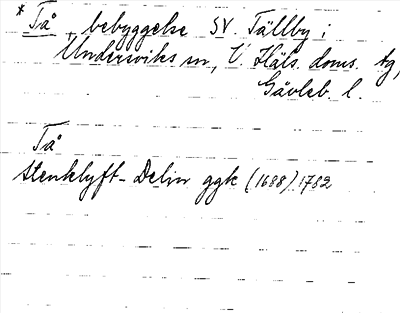 * Tå, bebyggelse SV. Tällby i
Undersviks sn, V. Häls. doms. tg,
Gävleb. l.
Tå
Stenklyft - Delin ggk (1688) 1782